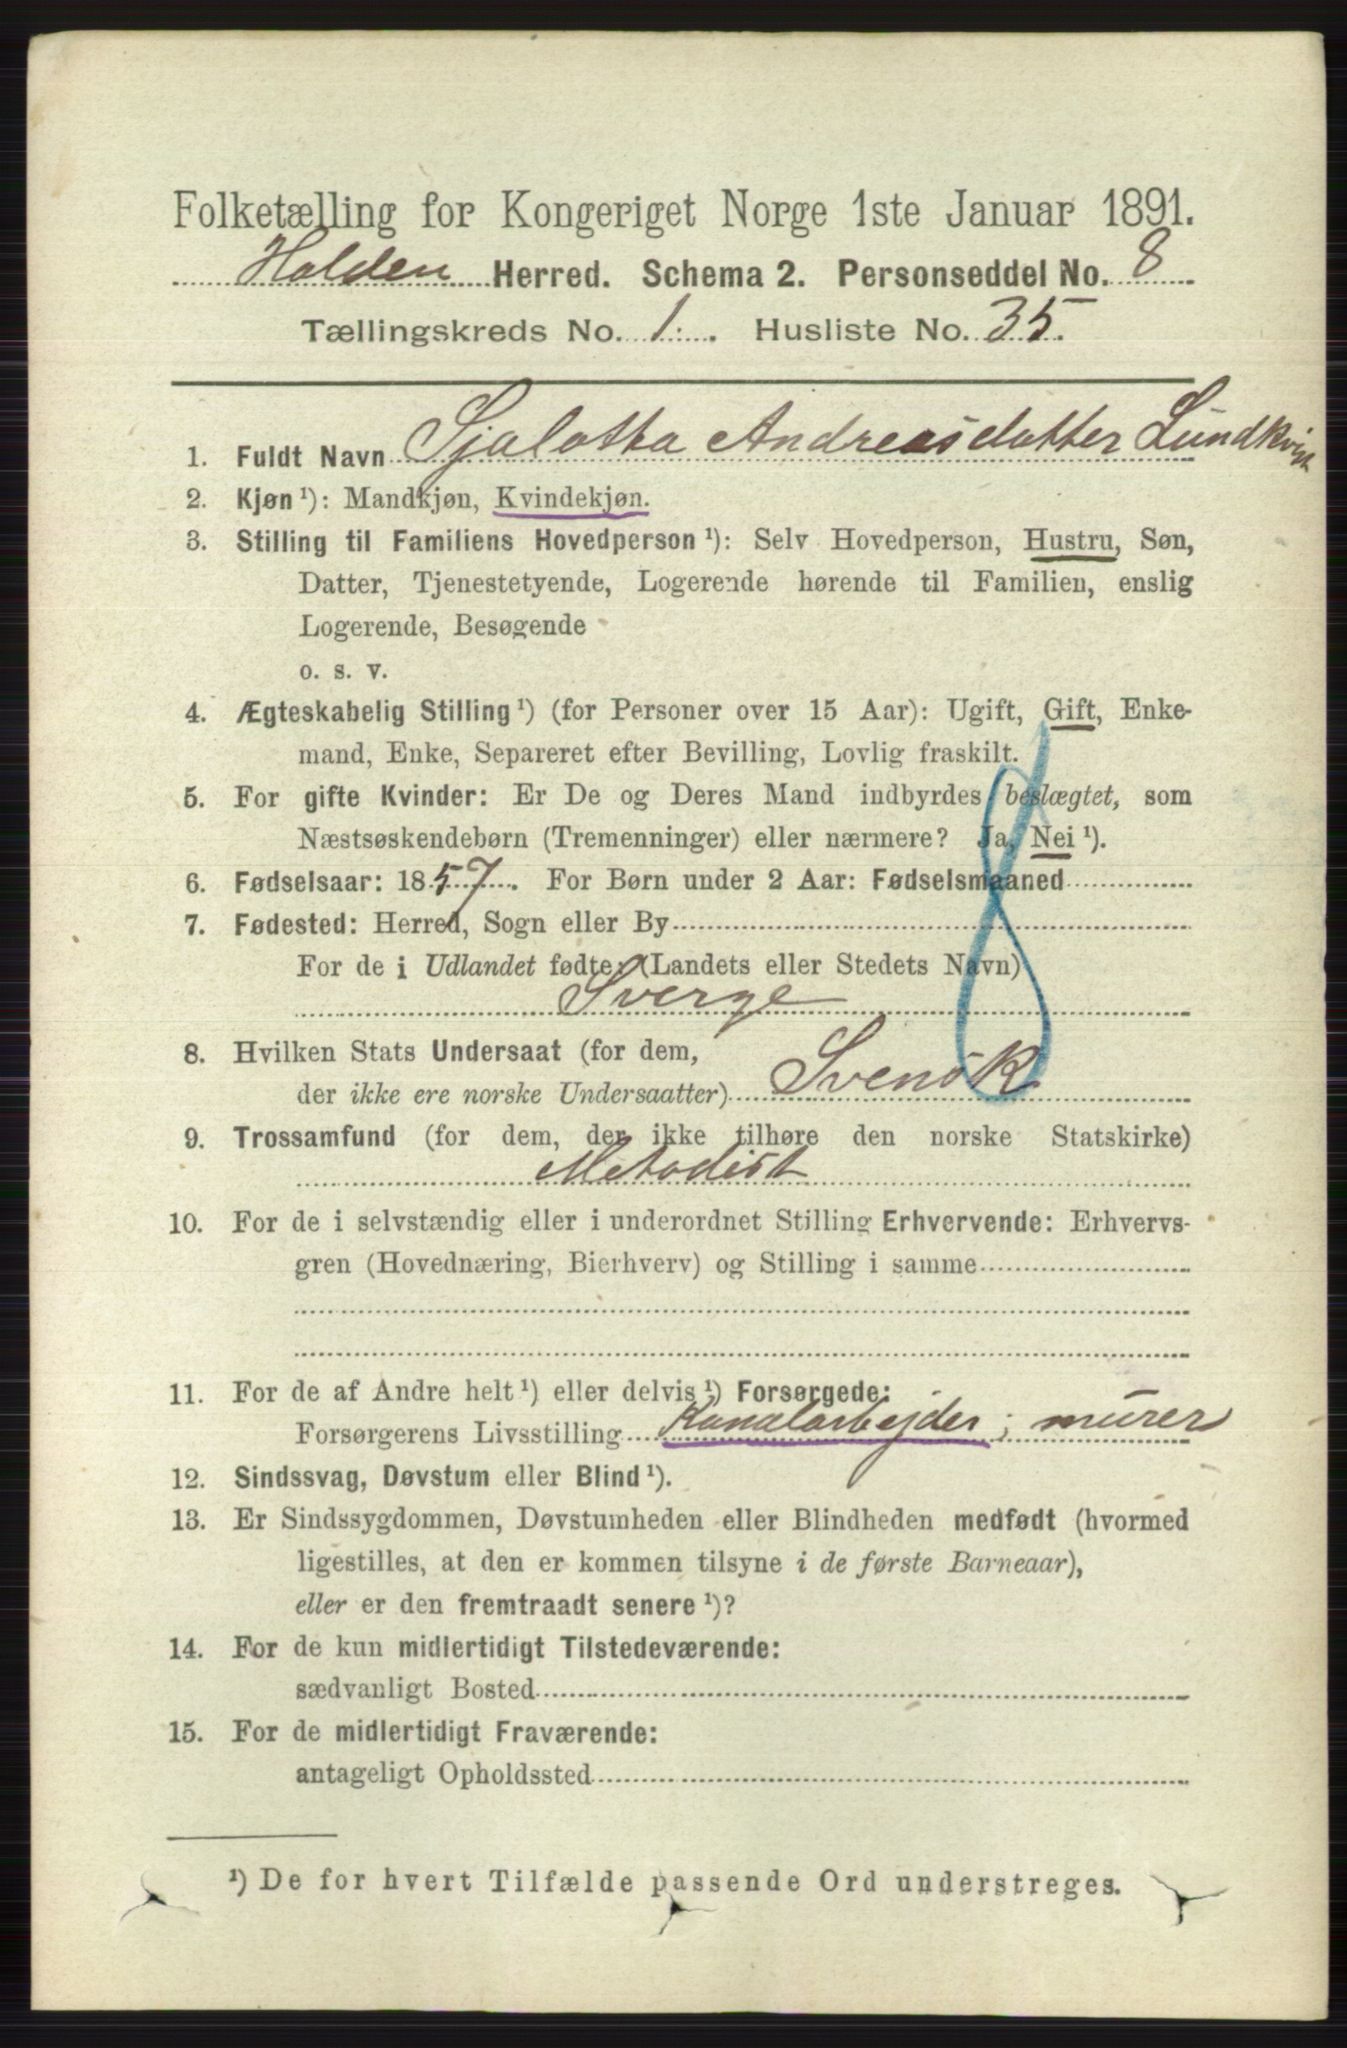 Folketælling for Kongeriget Norge 1ste Januar 1891.
Holden Herred. Schema 2. Personseddel No. 8
Tællingskreds No. 1. Husliste No. 35.
1. Fuldt Navn Sjalotta Andreasdatter Lundkvist
2. Kjøn ¹): Mandkjøn, Kvindekjøn.
3. Stilling til Familiens Hovedperson ¹): Selv Hovedperson, Hustru, Søn,
Datter, Tjenestetyende, Logerende hørende til Familien, enslig
Logerende, Besøgende
o. s. v.
4. Ægteskabelig Stilling ¹) (for Personer over 15 Aar): Ugift, Gift, Enke-
mand, Enke, Separeret efter Bevilling, Lovlig fraskilt.
5. For gifte Kvinder: Er De og Deres Mand indbyrdes beslægtet, som
Næstsøskendebørn (Tremenninger) eller nærmere? Ja, Nei ¹).
6. Fødselsaar: 1857. For Børn under 2 Aar: Fødselsmaaned
7. Fødested: Herred, Sogn eller By
For de i Udlandet fødte: (Landets eller Stedets Navn)
Sverge
8. Hvilken Stats Undersaat (for dem,
der ikke ere norske Undersaatter) Svensk
9. Trossamfund (for dem, der ikke tilhøre den norske Statskirke)
Metodist
10. For de i selvstændig eller i underordnet Stilling Erhvervende: Erhvervs-
gren (Hovednæring, Bierhverv) og Stilling i samme
11. For de af Andre helt ¹) eller delvis ¹) Forsørgede:
Forsørgerens Livsstilling Kanalarbejder; murer
12. Sindssvag, Døvstum eller Blind ¹).
13. Er Sindssygdommen, Døvstumheden eller Blindheden medfødt (hvormed
ligestilles, at den er kommen tilsyne i de første Barneaar),
eller er den fremtraadt senere ¹)?
14. For de kun midlertidigt Tilstedeværende:
sædvanligt Bosted
15. For de midlertidigt Fraværende:
antageligt Opholdssted
¹) De for hvert Tilfælde passende Ord understreges.